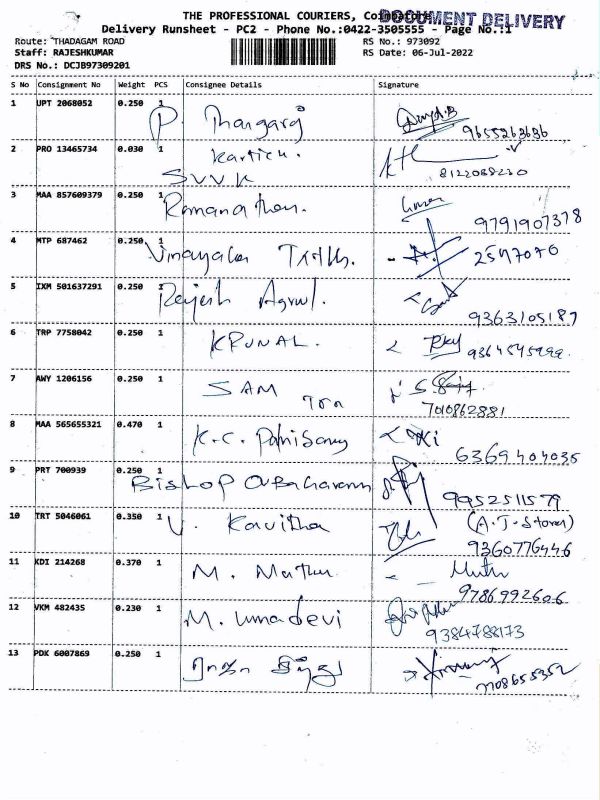 THE PROFESSIONAL COURIERS, Coimbatore
DOCUMENT DELIVERY
Delivery Runsheet - PC2 - Phone No.:0422-3505555 - Page No.:1
Route: THADAGAM ROAD RS No.: 973092
Staff: RAJESHKUMAR RS Date: 06-Jul-2022
DRS No.: DCJB97309201
S No Consignment No Weight PCS Consignee Details Signature
1 UPT 2068052 0.250 1 P. Thangaraj
9655263636
2 PRO 13465734 0.030 1 Kartick.
SVVK 8122088230
3 MAA 857609379 0.250 1 Ramanathan.
9791907378
4 MTP 687462 0.250 1 Vinayaka 2547070
5 IXM 501637291 0.250 1 Rajesh
9363105187
6 TRP 7758042 0.250 1 KRUNAL. 9364545999.
7 AWY 1206156 0.250 1 SAM
7010862881
8 MAA 565655321 0.470 1 K.C. PalniSamy
6369404035
9 PRT 700939 0.250 1 Bishop
9952511579
10 TRT 5046061 0.350 1 V. Kavitha
9360776446
11 KDI 214268 0.370 1 M. Muthu
9786992606
12 VKM 482435 0.230 1 M. Umadevi
9384788173
13 PDK 6007869 0.250 1
7708655352